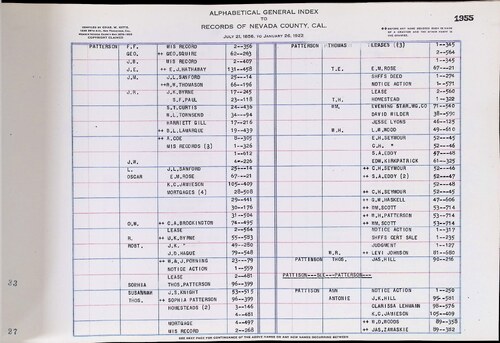 ALPHABETICAL GENERAL INDEX
TO
RECORDS OF NEVADA COUNTY, CAL.
1955
COPYRIGHT CLAIMED
JULY 21, 1856, to JANUARY 26, 1922
PATTERSON F.F. MIS RECORD 2--356
GEO. GEO. SQUIRE 62--293
J.B. MIS RECORD 2--407
J.E. ++ E.J. HATHAWAY 131--458
J.M. J.L. SANFORD 25--14
++R.W. THOMASON 66--196
J.R. J.K. BYRNE 11--245
S.F. PAUL 23--118
S.Y. CURTIS 24--436
N.L. TOWNSEND 34--94
HARRIETT GILL 17--216
++ B.L. LAMARQUE 19--439
+ A. COE 8--305
MIS RECORDS (3) 1--326
1--612
J.W. 4--226
L. J.L. SANFORD 25--14
OSCAR E.M. ROSE 67--21
K.C. JAMIESON 105--409
MORTGAGES (4) 28-508
29--441
30--176
31--504
O.W. ++ C.A. BROCKINGTON 74--495
LEASE 2--564
R. ++ W.K. BYRNE 55--583
ROBT. J.K. " 49--280
J.D. HAGUE 79--548
++ W.& J. PORNING 23--79
NOTICE ACTION 1--559
LEASE 2--481
SOPHIA THOS. PATTERSON 96--399
SUSANNAH J.S. KNIGHT 53--515
THOS. ++ SOPHIA PATTERSON 96--399
HOMESTEADS (2) 3--146
4--481
MORTGAGE 4--497
MIS RECORD 2--268
PATTERSON THOMAS LEADER (3) 1--345
2--564
1--345
T.E. E.M. ROSE 67--21
SHFFS DEED 1--274
NOTICE ACTION 1--571
LEASE 2--560
T.H. HOMESTEAD 1--322
WM. EVENING STAR, MG.CO 71--542
DAVID WILDER 38--590
JESSE LYONS 46--125
W.H. L.W. ROOD 49--610
E.H. SEYMOUR 52--45
C.H. " 52--46
S.A. EDDY 47--48
EDW. KIRKPATRICK 61--325
++ C.H. SEYMOUR 52--46
++ S.A. EDDY (2) 52--47
52--48
++ C.H. SEYMOUR 52--45
++ G.W. HASKELL 47--606
++ WM. SCOTT 53--714
++ W.H. PATTERSON 53--714
++ WM. SCOTT 53--714
NOTICE ACTION 1--317
SHFFS CERT SALE 1--235
JUDGMENT 1--127
W.R. ++ LEVI JOHNSON 81--580
PATTENSON THOS. JAS. HILL 96--216
PATTISON---SEE---PATTERSON---
PATTISON ANN NOTICE ACTION 1--250
ANTONIE J.K. HILL 95--581
CLARISSA LEHMANN 98--576
K.C. JAMIESON 105--409
++ H.D. WOODS 89--358
++ JAS. ZARASKIE 89--382
23
27
SEE NEXT PAGE FOR CONTINUANCE OF THE ABOVE NAMES OR ANY NEW NAMES OCCURRING BETWEEN